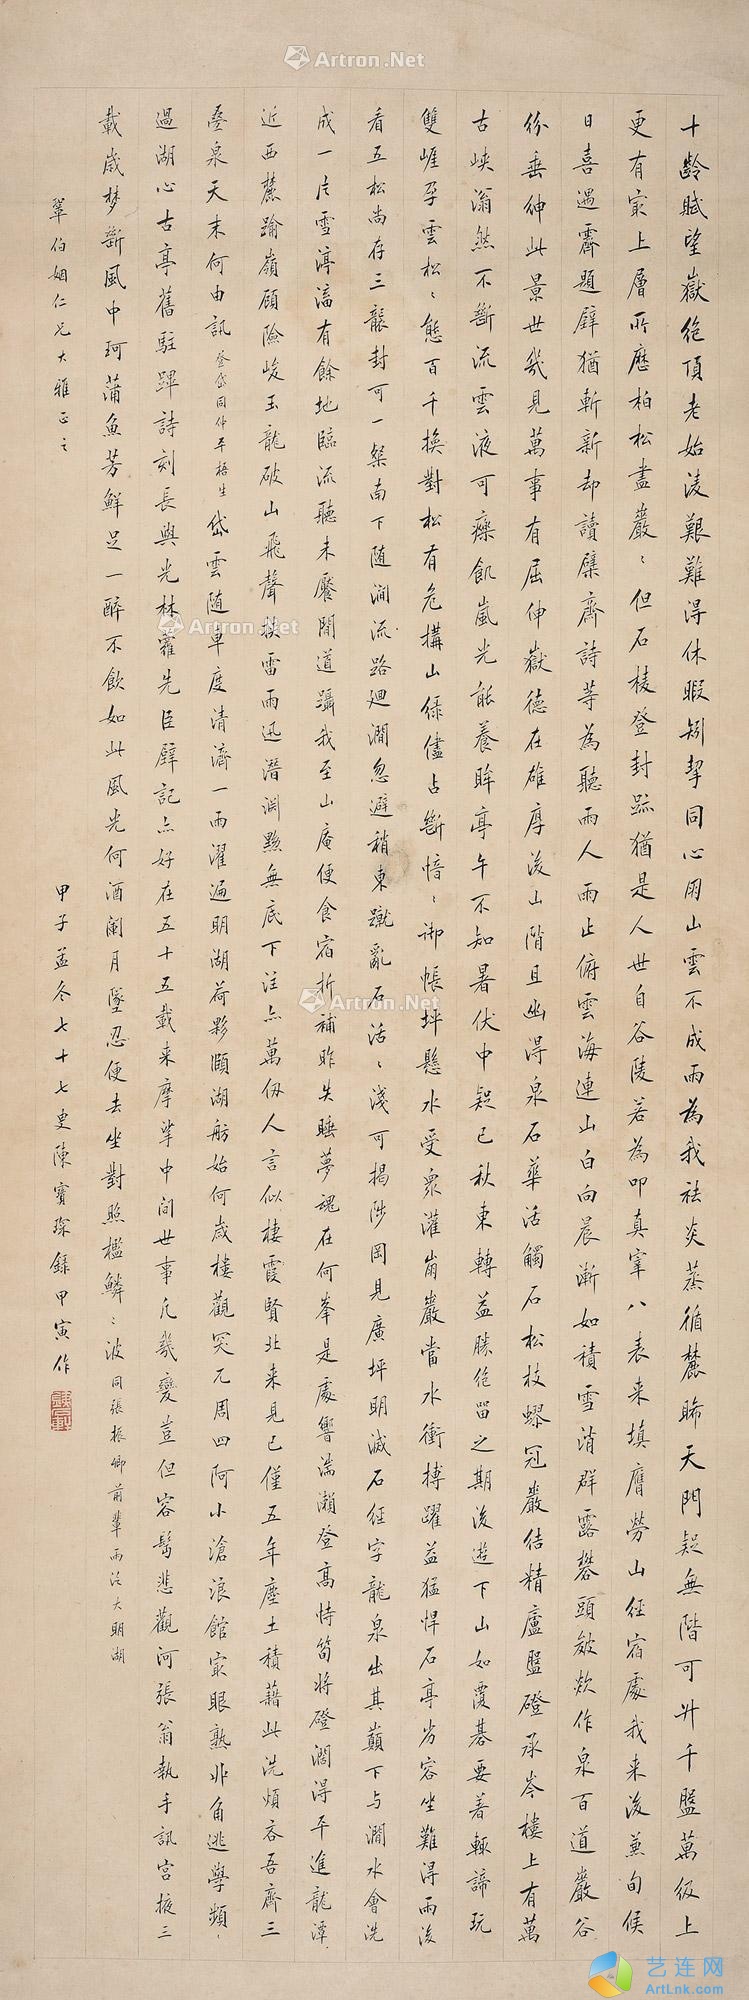 十齡賦望嶽絶頂老始淩艱難得休暇矧挈同心朋山雲不成雨為我祛炎蒸循麓睎天門疑無階可升千盤萬級上
更有最上層所歷柏松盡巖巖但石棱登封跡猶是人世自谷陵若為叩真宰八表来填膺勞山經宿處我来後兼旬候
日喜遇霽題壁猶嶄新却讀檗齋詩等為聽雨人雨止俯雲海連山白向晨漸如積雪消群露礬頭皴欻作泉百道巖谷
紛垂紳此景世幾見萬事有屈伸嶽德在雄厚後山階且幽得泉石華活觸石松枝蟉冠巖結精廬盤磴承岑樓上有萬
古峽滃然不斷流雲液可療飢嵐光能養眸亭午不知暑伏中疑已秋東轉益勝絶畱之期後遊下山如覆碁要着輒諦玩
雙崕孕雲松松態百千換對松有危構山緑儘占斷愔愔御帳坪懸水受衆灌崩巖當水衝搏躍益猛悍石亭劣容坐難得雨後
看五松尚存三龑封可一粲南下随澗流路廻澗忽避稍東蹴亂石活活淺可揭陟岡見廣坪明滅石經字龍泉出其巔下与澗水會洗
成一片雪渟滀有餘地臨流聽未饜閒道躡我至山庵便食宿折補昨失睡夢魂在何峯是處響湍瀨登高恃筍將磴濶得平進龍潭
近西麓踰嶺顧險峻玉龍破山飛聲挾雷雨迅潛淵黝無底下注亦萬仭人言似棲霞賢北来見已僅五年塵土積藉此洗煩吝吾齋三
疊泉天末何由訊 登岱同仲平梧生 岱雲随車度清濟一雨濯遍明湖荷夥頤湖舫始何歲樓觀突兀周四阿小滄浪館最眼熟丱角逃學頻頻
過湖心古亭舊駐蹕詩刻長與光林蘿先臣壁記亦好在五十五載来摩挲中间世事凡幾變豈但容髩悲觀河張翁執手訊宫掖三
載歲夢斷風中珂蒲魚芳鮮足一醉不飲如此風光何酒闌月墜忍便去坐對照檻鱗鱗波 同張振卿前輩雨泛大明湖
肇伯姻仁兄大雅正之
甲子孟冬七十七叟陳寶琛録甲寅作
Artron.Net
Artron.Net
Artron.Net
艺连网
ArtLnk.com